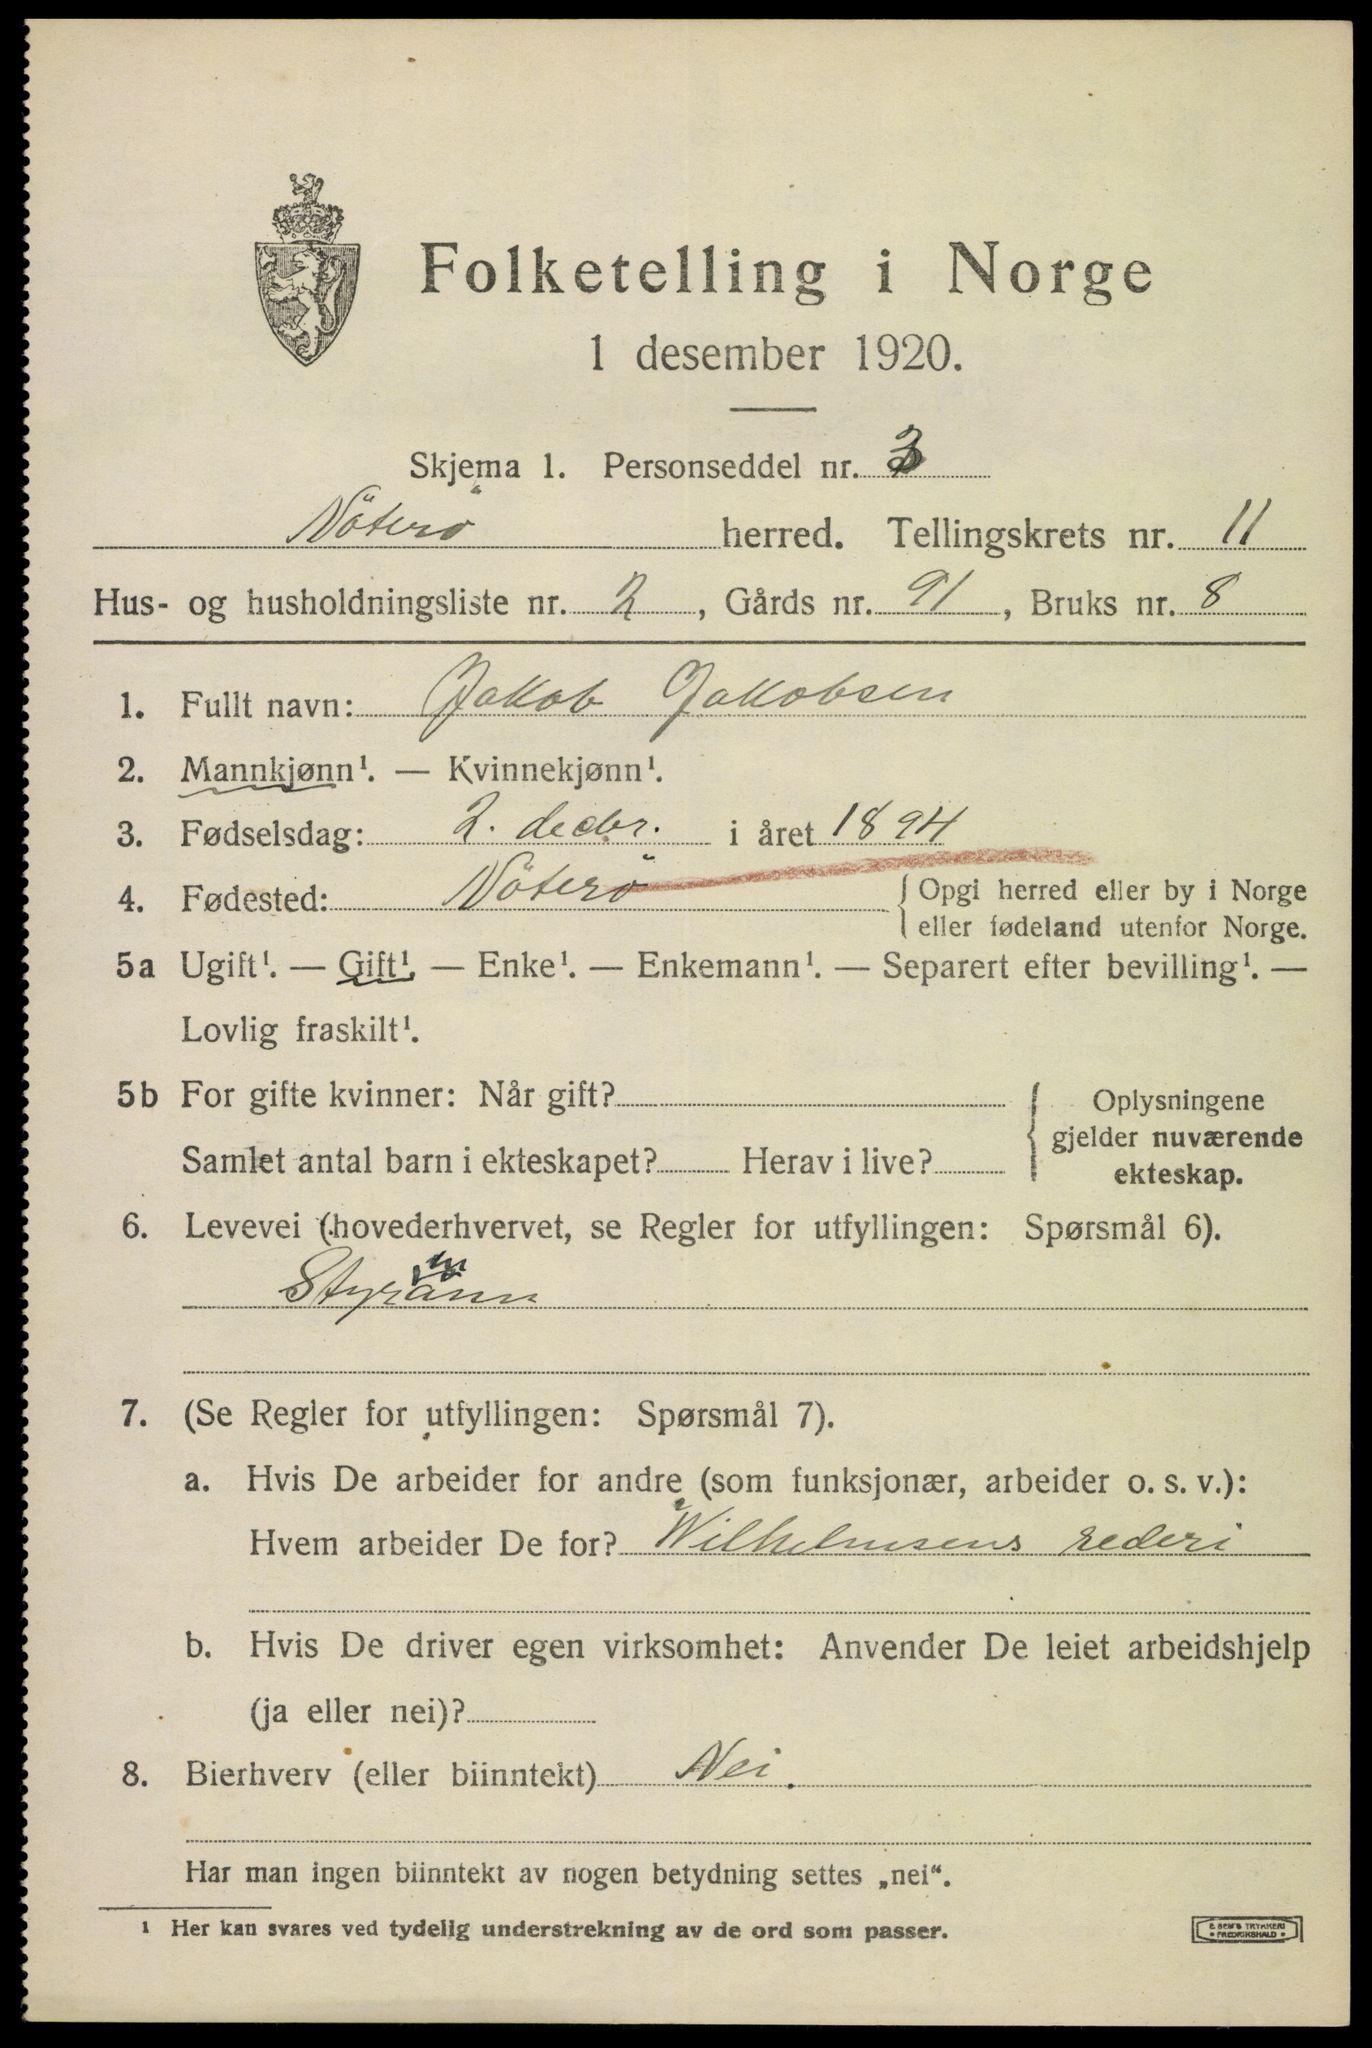 Folketelling i Norge
1 desember 1920.
Skjema 1. Personseddel nr. 3
Nöterö herred. Tellingskrets nr. 11
Hus- og husholdningsliste nr. 2, Gårds nr. 91, Bruks nr. 8
1. Fullt navn: Jakob Jakobsen
2. Mannkjønn¹. — Kvinnekjønn¹.
3. Fødselsdag: 2. decbr. i året 1894
4. Fødested: Nöterö { Opgi herred eller by i Norge
eller fødeland utenfor Norge.
5a Ugift¹. — Gift¹, — Enke¹. — Enkemann¹. — Separert efter bevilling¹. —
Lovlig fraskilt¹.
5b For gifte kvinner: Når gift? { Oplysningene
gjelder nuværende
Samlet antal barn i ekteskapet? Herav i live?
ekteskap.
6. Levevei (hovederhvervet, se Regler for utfyllingen: Spørsmål 6).
Styrmann
7. (Se Regler for utfyllingen: Spørsmål 7).
a. Hvis De arbeider for andre (som funksjonær, arbeider o. s. v.):
Hvem arbeider De for? Wilhelmsens rederi
b. Hvis De driver egen virksomhet: Anvender De leiet arbeidshjelp
(ja eller nei)?
8. Bierhverv (eller biinntekt) Nei.
Har man ingen biinntekt av nogen betydning settes „nei“.
¹ Her kan svares ved tydelig understrekning av de ord som passer.
E. SEM'S TRYKKERI
• FREDRIKSHALD •